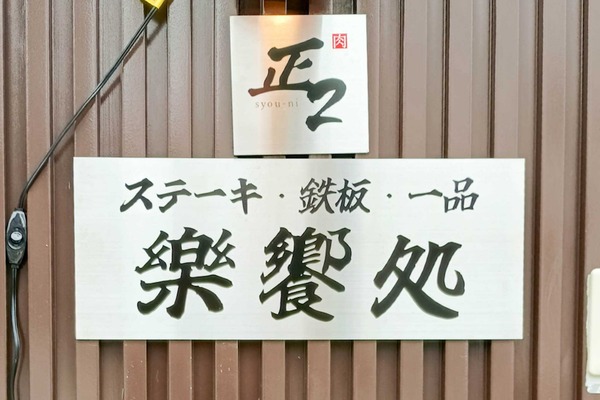 正2
肉
syou-ni
ステーキ・鉄板・一品
樂饗処